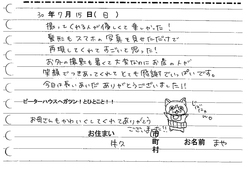 30年7月15日(日)
撮ってくれる人が優しくて楽しかった!
髪形もスマホの写真を見せただけで
再現してくれてすごいと思った!
お外の撮影も暑くて大変なのにお店の人が
笑顔でつきあってくれてとても感謝でいっぱいです。
今日は長いあいだありがとうございました!!
ピーターハウスへガツン!とひとこと!!
お母さんもかわいくしてくれてありがとう
ございました!!
お住まい 牛久 市町村 お名前 まや